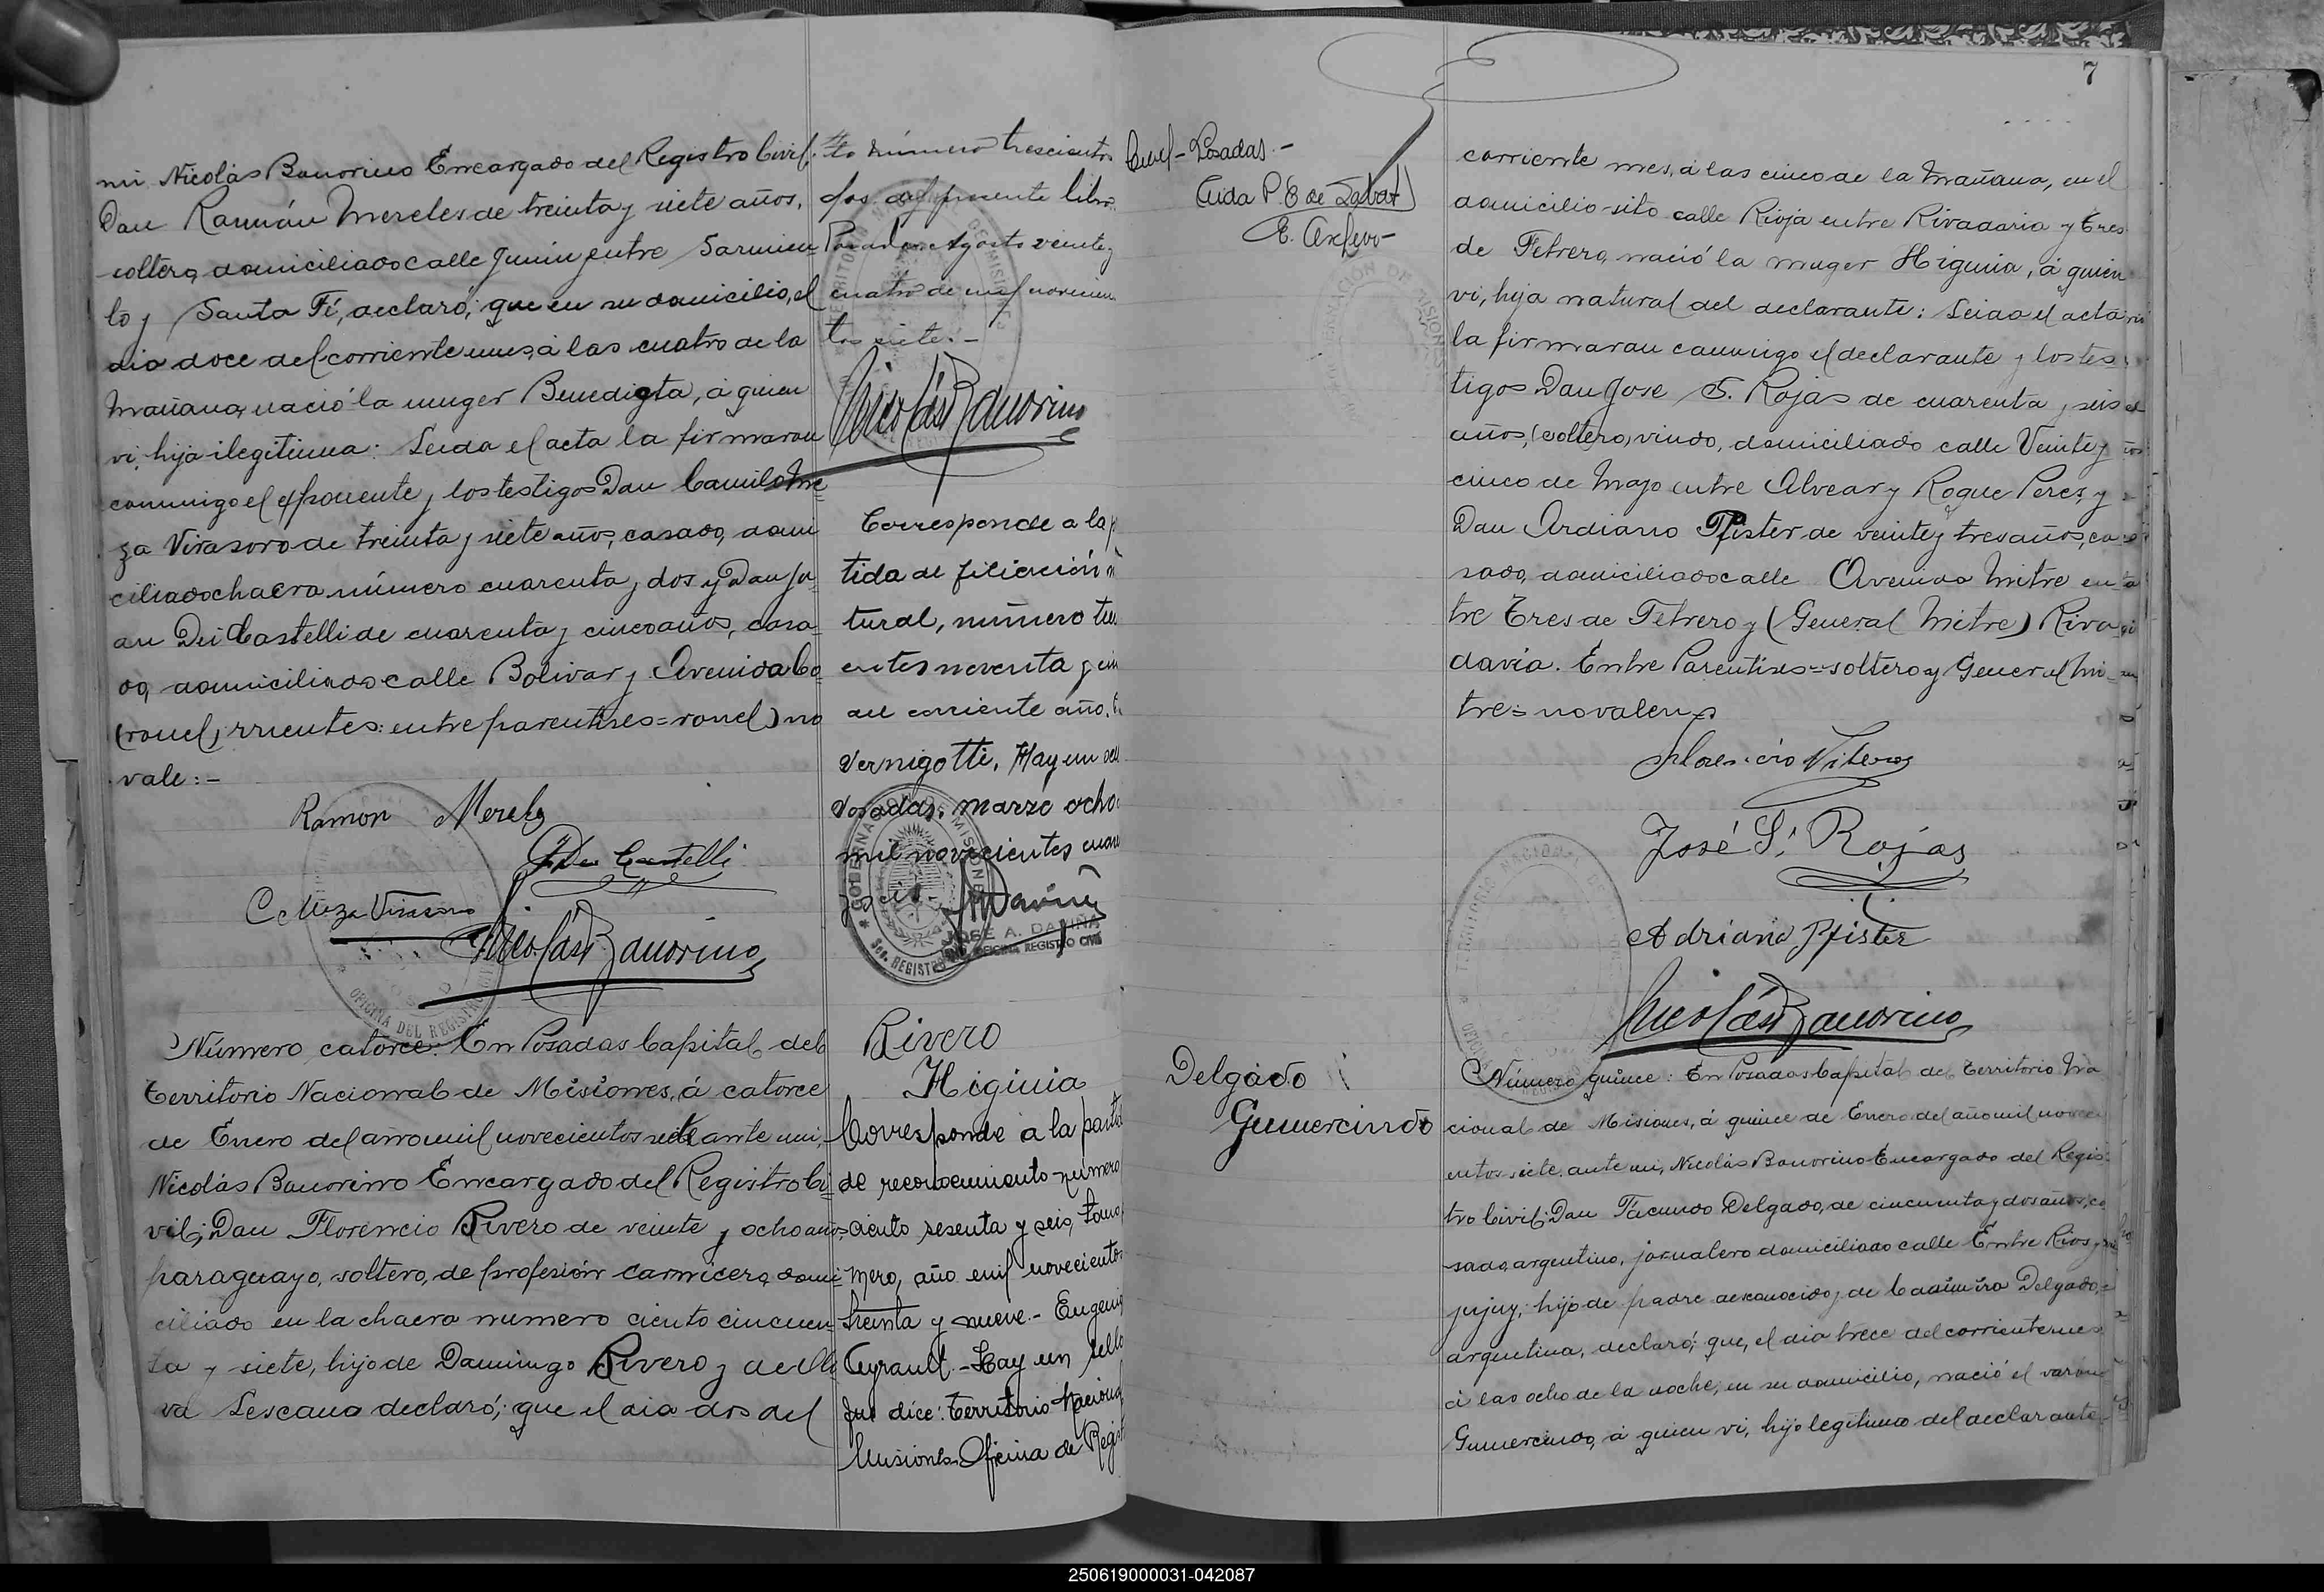 mi Nicolás Bonorino Encargado del Registro Civil:
Don Ramón Mereles de treinta y siete años,
soltero, domiciliado calle Junin entre Sarmien-
to y Santa Fé, declaró; que en su domicilio, el
dia doce del corriente mes, á las cuatro de la
mañana, nació la muger Benedicta, á quien
vi, hija ilegitima: Leida el acta la firmaron
conmigo el exponente y los testigos Don Camilo Me-
za Virasoro de treinta y siete años, casado, domi
ciliado chacra número cuarenta y dos y Don Ju-
an Dei Castelli de cuarenta y cinco años, casa-
do, domiciliado calle Bolivar y Avenida Co-
(ronel) rrientes: entre parentises=ronel) no
vale:-
Ramon Mereles
J. Dei Castelli
C. Meza Virasoro
Nicolás Bonorino
Número catorce: En Posadas Capital del
Territorio Nacional de Misiones, á catorce
de Enero del año mil novecientos siete ante mi,
Nicolás Bonorino Encargado del Registro Ci-
vil; Don Florencio Rivero de veinte y ocho años
paraguayo, soltero, de profesión carnicero, domi-
ciliado en la chacra numero ciento cincuen-
ta y siete, hijo de Domingo Rivero y de
va Lescano declaró; que el dia dos del
to número trescientos
dos del presente libro.
Posadas, Agosto veinte y
cuatro de mil novecien
tos siete.-
Nicolás Bonorino
Corresponde a la
tida de filiación
tural, número
entos noventa y
del corriente año.
Vernigotti. Hay un
Posadas, marzo ocho
mil novecientos
JOSÉ A. DAVIÑA
OFICINA REGISTRO CIVIL
Rivero
Higinia
Corresponde a la partid
de reconocimiento número
ciento sesenta y seis, tomo
mero, año mil novecientos
treinta y nueve.- Eugenio
Ceyrault.-Hay un sello
que dice: Territorio Nacional
Misiones Oficina de Regist
Civil-Posadas.-
7
corriente mes, á las cinco de la mañana, en el
domicilio sito calle Rioja entre Rivadavia y Tres
de Febrero, nació la muger Higinia, á quien
vi, hija natural del declarante: Leida el acta
la firmaron conmigo el declarante y los tes
tigos Don José S. Rojas de cuarenta y seis
años, (soltero) viudo, domiciliado calle Veinte y
cinco de Mayo entre Alvear y Roque Perez, y
Don Ardiano Pfister de veinte y tres años, ca
sado, domiciliado calle Avenida Mitre en
tre Tres de Febrero y (General Mitre) Riva
davia. Entre Parentises=soltero y General Mi-
tre=no valen
Florencio Rivero
José S. Rojas
Adriano Pfister
Nicolás Bonorino
Delgado
Gumercindo
Número quince: En Posadas Capital del Territorio Na
cional de Misiones, á quince de Enero del año mil novec
entos siete ante mi, Nicolás Bonorino Encargado del Regis-
tro Civil: Don Facundo Delgado, de cincuenta y dos años, ca
sado, argentino, jornalero domiciliado calle Entre Rios y
jujuy; hijo de padre desconocido y de Casimira Delgado,
argentina, declaró; que, el dia trece del corriente mes
á las ocho de la noche, en su domicilio, nació el varon
Gumercindo, á quien vi, hijo legitimo del declarante
250619000031-042087